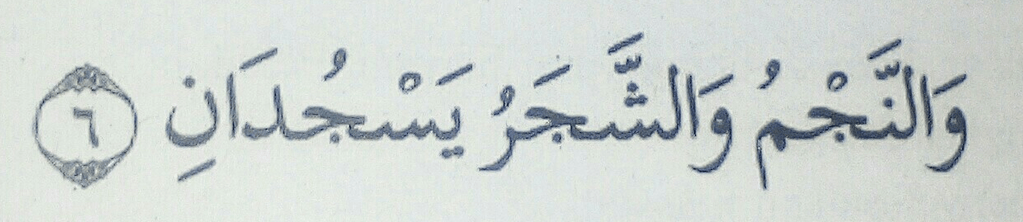 وَالنَّجْمُ وَالشَّجَرُ يَسْجُدَانِ ٦